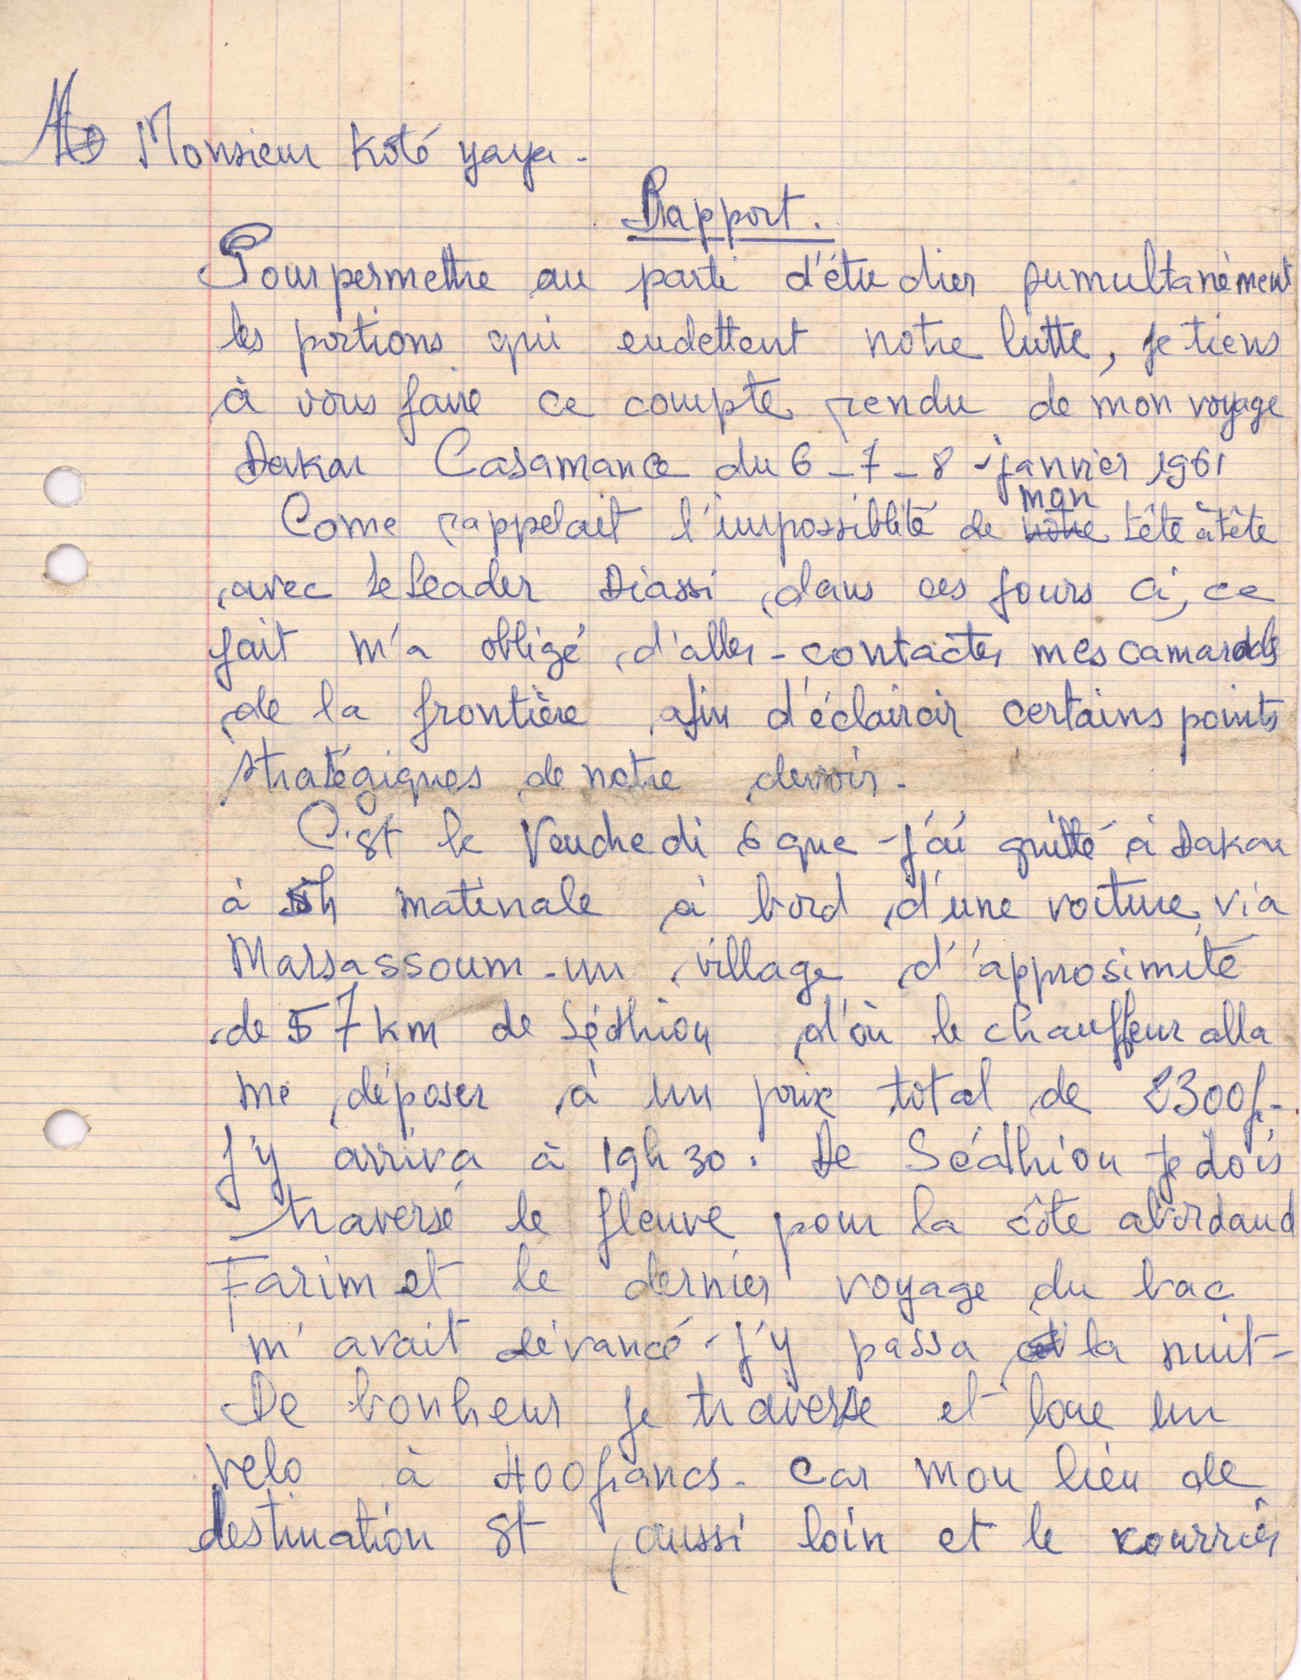 Monsieur Koté yaya -
Rapport.
Pour permettre au parti d'étudier sumultanément
les portions qui endettent notre lutte, je tiens
à vous faire ce compte rendu de mon voyage
Dakar Casamance du 6-7-8 - janvier 1961
mon
Come rappelait l'impossiblité de notre tête à tête
avec le leader Diassi dans ces jours ci, ce
fait m'a obligé d'aller - contacter mes camarades
de la frontière afin d'éclaircir certains points
stratégiques de notre devoir.
C'est le Vendredi 6 que - j'ai quitté à Dakar
à 5h matinale à bord d'une voiture via
Marsassoum - un village d'approsimité
de 57 km de Sédhiou d'où le chauffeur alla
me déposer à un prix total de 2300f -
j'y arriva à 19h30. De Sédhiou je dois
traversé le fleuve pour la côte abordand
Farim et le dernier voyage du bac
m'avait dévancé - j'y passa la nuit -
De bonheur je traverse et loue un
velo à 400francs - car mon lieu de
destination est aussi loin et le courrier